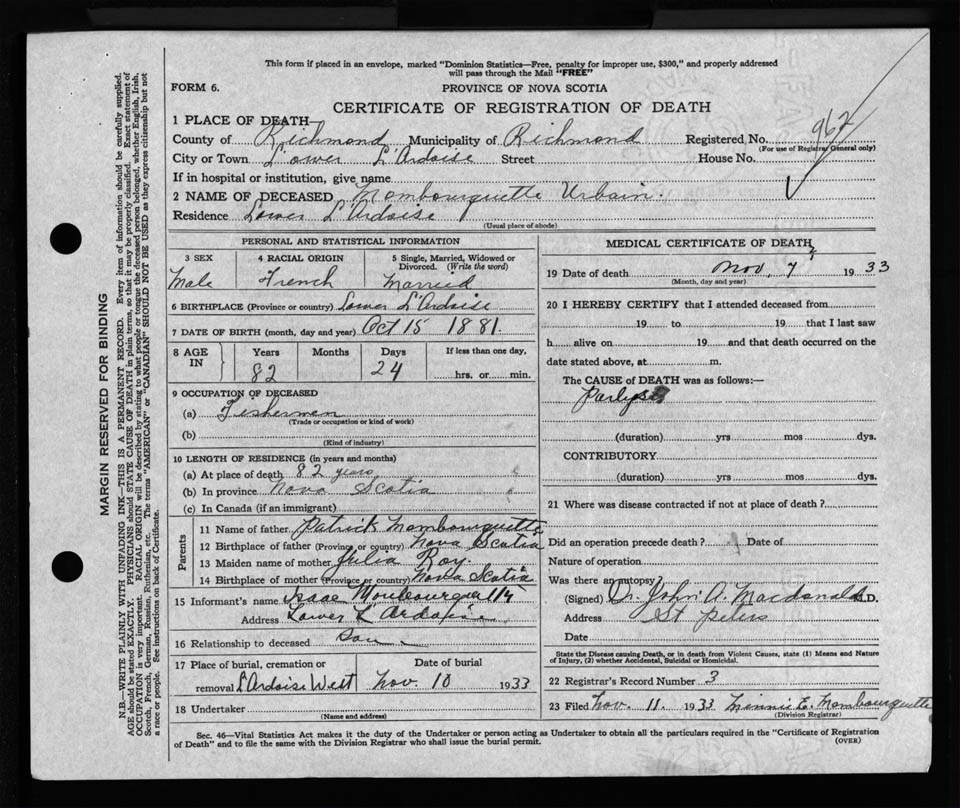 This form if placed in an envelope, marked "Dominion Statistics—Free, penalty for improper use, $300," and properly addressed
will pass through the Mail "FREE"
FORM 6.
PROVINCE OF NOVA SCOTIA
CERTIFICATE OF REGISTRATION OF DEATH
1 PLACE OF DEATH
County of Richmond Municipality of Richmond Registered No. 962
(For use of Registrar General only)
City or Town Lower L'Ardoise Street House No.
If in hospital or institution, give name
2 NAME OF DECEASED Mombourquette Urbain.
Residence Lower L'Ardoise
(Usual place of abode)
PERSONAL AND STATISTICAL INFORMATION
3 SEX 4 RACIAL ORIGIN 5 Single, Married, Widowed or
Divorced. (Write the word)
Male French Married
6 BIRTHPLACE (Province or country) Lower L'Ardoise
7 DATE OF BIRTH (month, day and year) Oct 15 1881
8 AGE IN Years Months Days If less than one day,
82 24 hrs. or min.
9 OCCUPATION OF DECEASED
(a) Fishermen
(Trade or occupation or kind of work)
(b)
(Kind of industry)
10 LENGTH OF RESIDENCE (in years and months)
(a) At place of death 82 years
(b) In province Nova Scotia
(c) In Canada (if an immigrant)
Parents
11 Name of father Patrick Mombourquette
12 Birthplace of father (Province or country) Nova Scotia
13 Maiden name of mother Julia Roy
14 Birthplace of mother (Province or country) Nova Scotia
15 Informant's name Isaac
Address Lower L Ardoise
16 Relationship to deceased Son
17 Place of burial, cremation or Date of burial
removal L'Ardoise West Nov. 10 1933
18 Undertaker
(Name and address)
MEDICAL CERTIFICATE OF DEATH
19 Date of death Nov, 7 1933
(Month, day and year)
20 I HEREBY CERTIFY that I attended deceased from
19 to 19 that I last saw
h alive on 19 and that death occurred on the
date stated above, at m.
The CAUSE of DEATH was as follows:—
(duration) yrs mos dys.
CONTRIBUTORY
(duration) yrs mos dys.
21 Where was disease contracted if not at place of death?
Did an operation precede death? Date of
Nature of operation
Was there an autopsy?
(Signed) Dr. John A. Macdonald M.D.
Address St Peters
Date
State the Disease causing Death, or in death from Violent Causes, state (1) Means and Nature
of Injury, (2) whether Accidental, Suicidal or Homicidal.
22 Registrar's Record Number 3
23 Filed Nov. 11. 1933 Minnie E. Mombourquette
(Division Registrar)
Sec. 46—Vital Statistics Act makes it the duty of the Undertaker or person acting as Undertaker to obtain all the particulars required in the "Certificate of Registration
of Death" and to file the same with the Division Registrar who shall issue the burial permit.
(OVER)
MARGIN RESERVED FOR BINDING
N.B.—WRITE PLAINLY WITH UNFADING INK—THIS IS A PERMANENT RECORD. Every item of information should be carefully supplied.
AGE should be stated EXACTLY. PHYSICIANS should STATE CAUSE OF DEATH in plain terms, so that it may be properly classified. Exact statement of
OCCUPATION is very important. RACIAL ORIGIN will be described by stating to what people or tongue the deceased person belonged, whether English, Irish,
Scotch, French, German, Russian, Ruthenian, etc. The terms "AMERICAN" or "CANADIAN" SHOULD NOT BE USED as they express citizenship but not
a race or people. See instructions on back of Certificate.